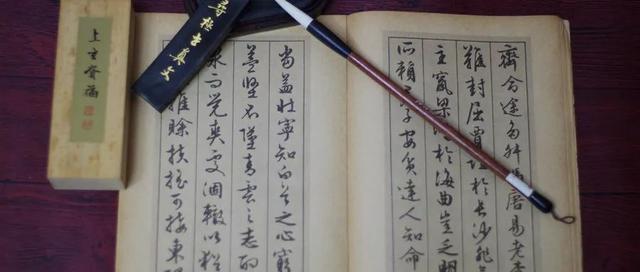 齊命途多舛馮唐易老李
難封屈賈誼於長沙非
主竄梁鴻於海曲豈乏明
所賴君子安貧達人知命
當益壯寧知白首之心窮
益堅不墜青雲之志酌
泉而覺爽處涸轍以猶
雖賒扶搖可接東隅